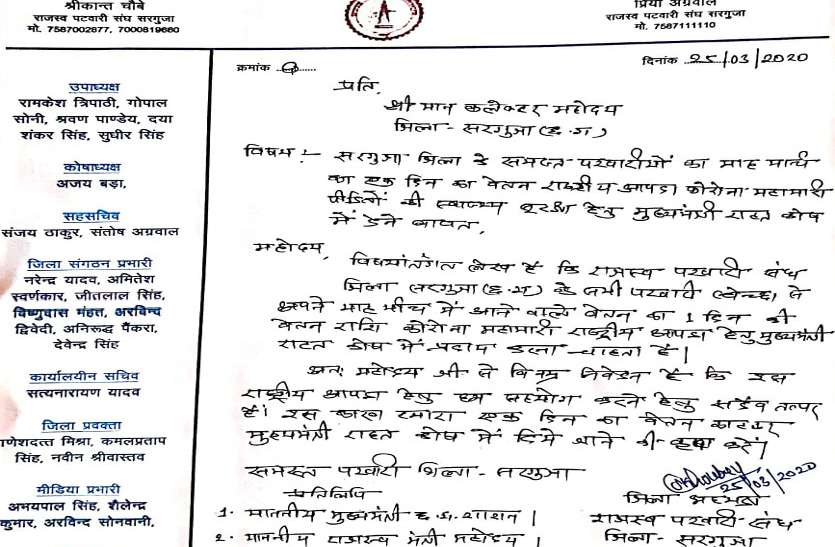 श्रीकान्त चौबे
राजस्व पटवारी संघ सरगुजा
मो. 7587002877, 7000819660
प्रिया अग्रवाल
राजस्व पटवारी संघ सरगुजा
मो. 7587111110
क्रमांक ........
दिनांक ..25/03/2020
उपाध्यक्ष
रामकेश त्रिपाठी, गोपाल
सोनी, श्रवण पाण्डेय, दया
शंकर सिंह, सुधीर सिंह
कोषाध्यक्ष
अजय बड़ा,
सहसचिव
संजय ठाकुर, संतोष अग्रवाल
जिला संगठन प्रभारी
नरेन्द्र यादव, अमितेश
स्वर्णकार, जीतलाल सिंह,
विष्णुदास मंहत, अरविन्द
द्विवेदी, अनिरूद्ध पैंकरा,
देवेन्द्र सिंह
कार्यालयीन सचिव
सत्यनारायण यादव
जिला प्रवक्ता
गणेशदत्त मिश्रा, कमलप्रताप
सिंह, नवीन श्रीवास्तव
मीडिया प्रभारी
अभयपाल सिंह, शैलेन्द्र
कुमार, अरविन्द सोनवानी,
प्रति,
श्रीमान कलेक्टर महोदय
जिला - सरगुजा (छ.ग)
विषय :- सरगुजा जिला के समस्त पटवारीयों का माह मार्च
का एक दिन का वेतन राष्ट्रीय आपदा कोरोना महामारी
पीडितों की स्वास्थ्य सुरक्षा हेतु मुख्यमंत्री राहत कोष
में देने बाबत,
महोदय,
विषयांतर्गत लेख है कि राजस्व पटवारी संघ
जिला सरगुजा (छ.ग) के सभी पटवारी स्वेच्छा से
अपने माह मार्च में आने वाले वेतन का 1 दिन की
वेतन राशि कोरोना महामारी राष्ट्रीय आपदा हेतु मुख्यमंत्री
राहत कोष में प्रदाय करना चाहता है।
अतः महोदय जी से विनम्र निवेदन है कि इस
राष्ट्रीय आपदा हेतु हम सहयोग करने हेतु सदैव तत्पर
है। इस कारण हमारा एक दिन का वेतन काटकर
मुख्यमंत्री राहत कोष में दिये जाने की कृपा करें।
समस्त पटवारी जिला - सरगुजा
प्रतिलिपि
1. माननीय मुख्यमंत्री छ.ग. शासन।
2. माननीय राजस्व मंत्री महोदय।
25/03/2020
जिला अध्यक्ष
राजस्व पटवारी संघ
जिला - सरगुजा